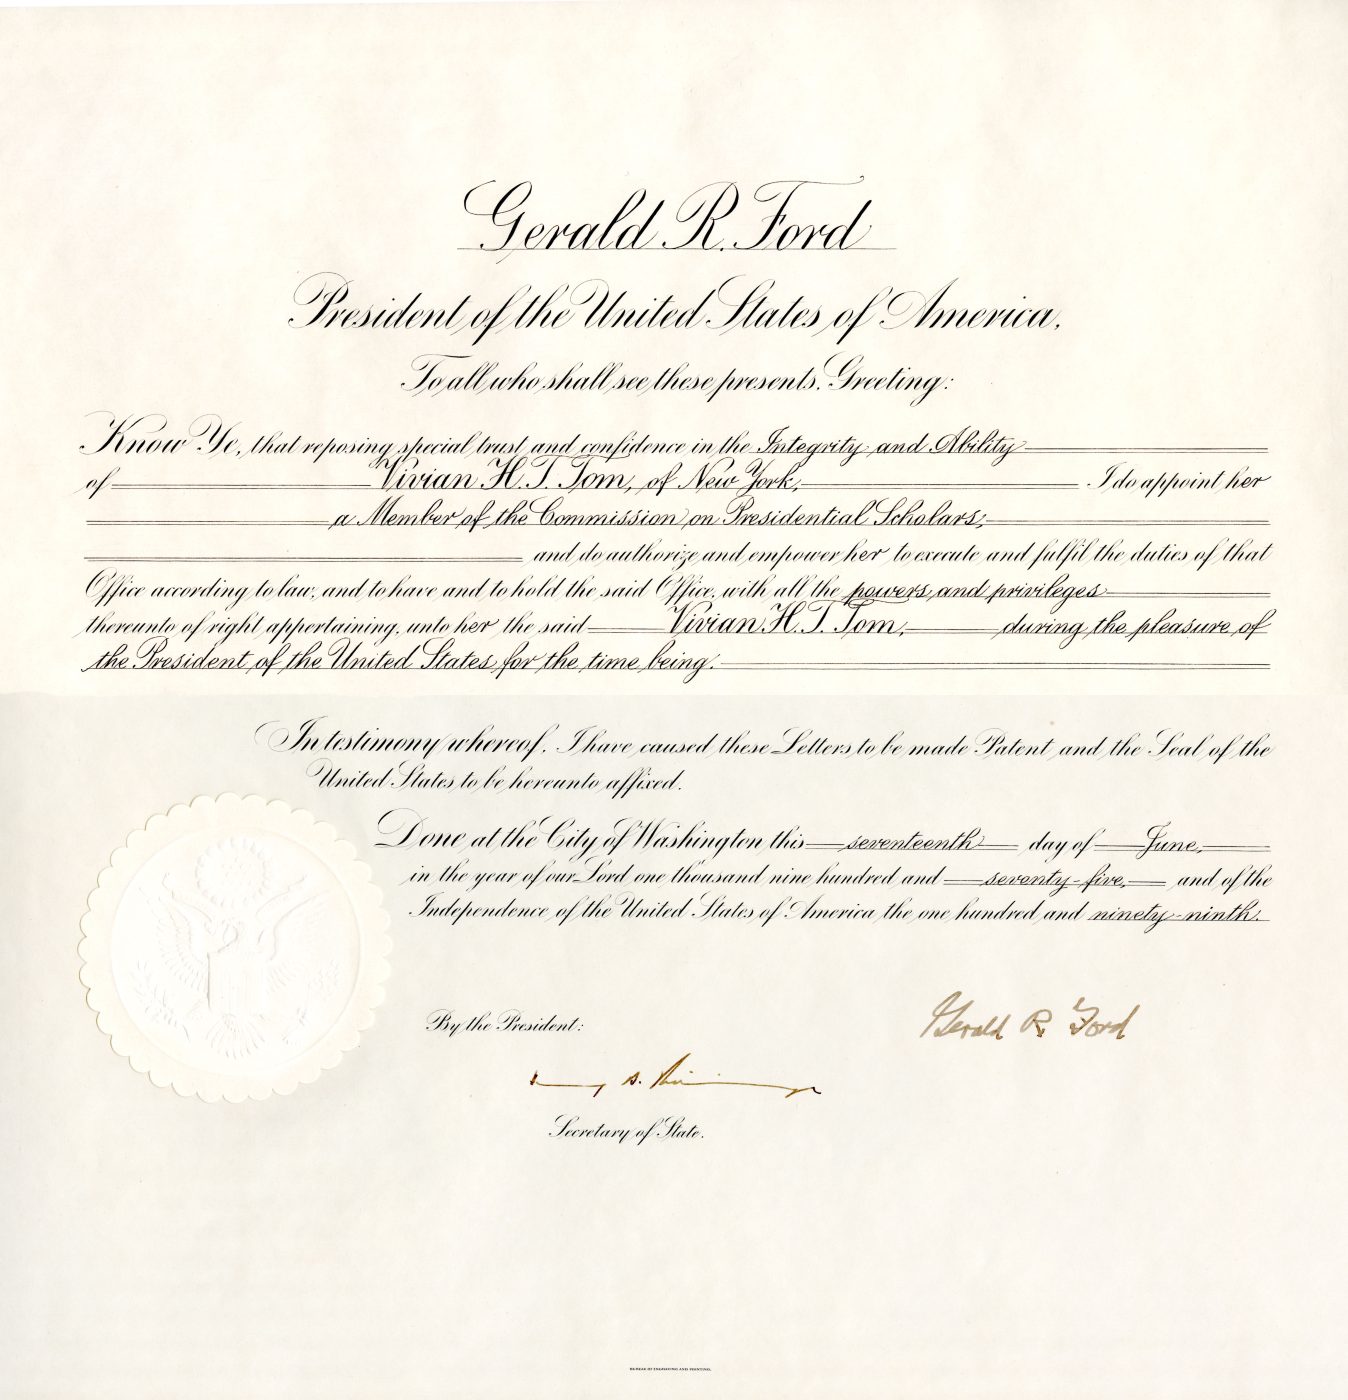 Gerald R. Ford
President of the United States of America,
To all who shall see these presents, Greeting:
Know Ye, that reposing special trust and confidence in the Integrity and Ability
of Vivian H. T. Tom, of New York, I do appoint her
a Member of the Commission on Presidential Scholars,
and do authorize and empower her to execute and fulfil the duties of that
Office according to law, and to have and to hold the said Office, with all the powers and privileges
thereunto of right appertaining, unto her the said Vivian H. T. Tom, during the pleasure of
the President of the United States for the time being.
In testimony whereof, I have caused these Letters to be made Patent and the Seal of the
United States to be hereunto affixed.
Done at the City of Washington this seventeenth day of June,
in the year of our Lord one thousand nine hundred and seventy-five, and of the
Independence of the United States of America the one hundred and ninety-ninth.
Gerald R. Ford
By the President:
Secretary of State.
BUREAU OF ENGRAVING AND PRINTING.